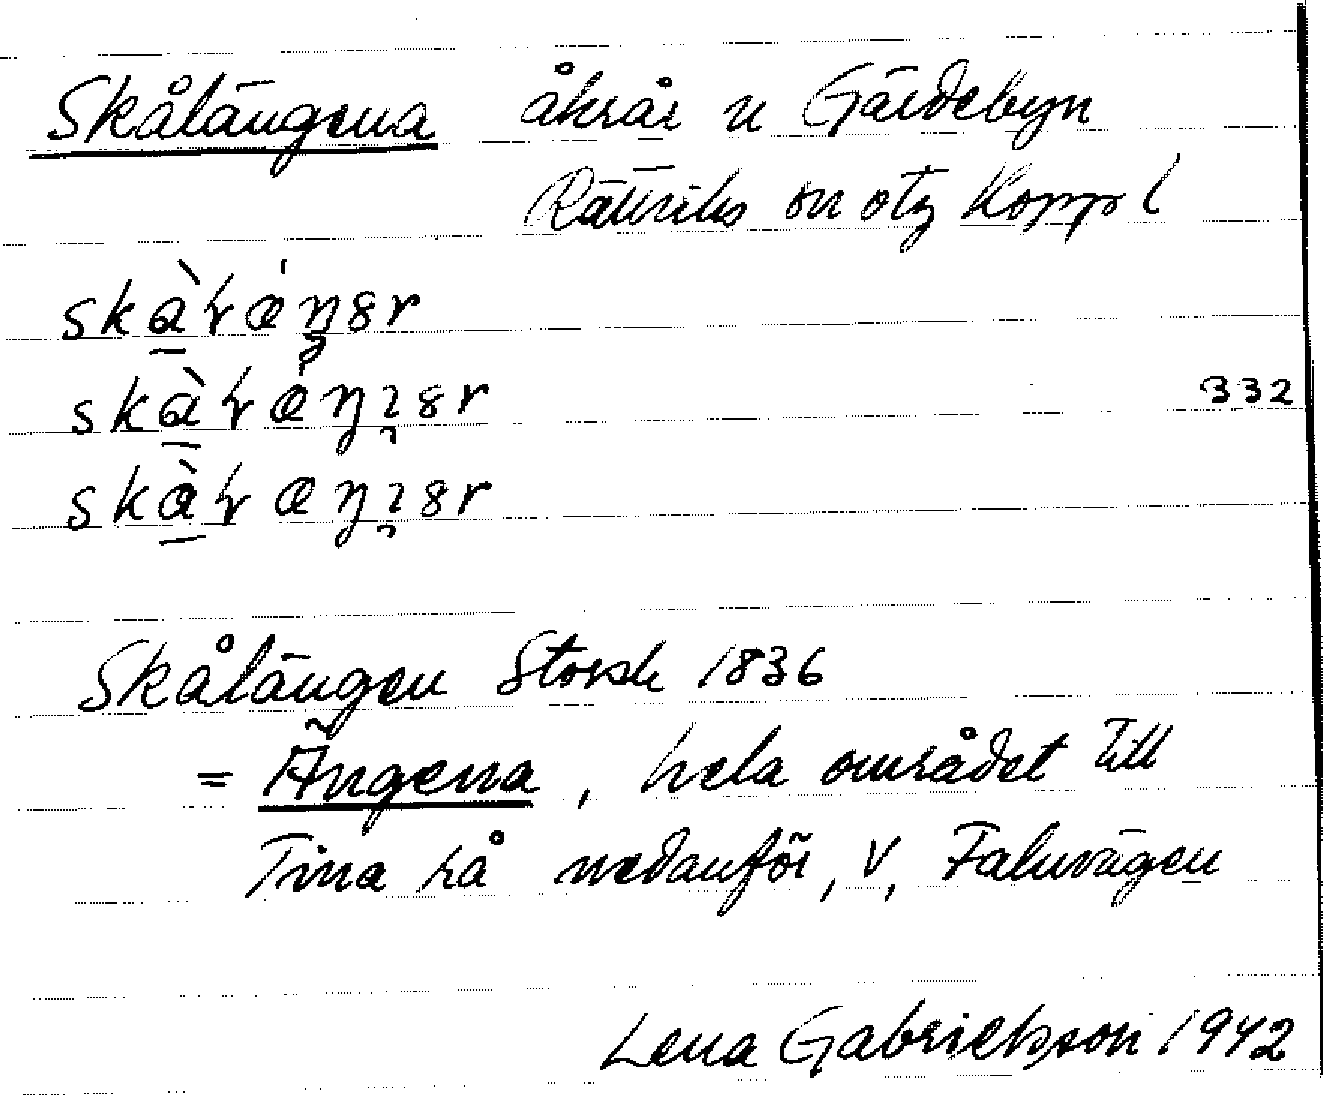 Skålängena åkrar n Gärdebyn
Rättviks sn otg Koppl
skàɽæŋər
skàɽæŋɪər
332
skàɽæŋɪər
Skålängen Storsk 1836
= Ängena, hela området till
Tina rå nedanför, V, Faluvägen
Lena Gabrielsson 1942